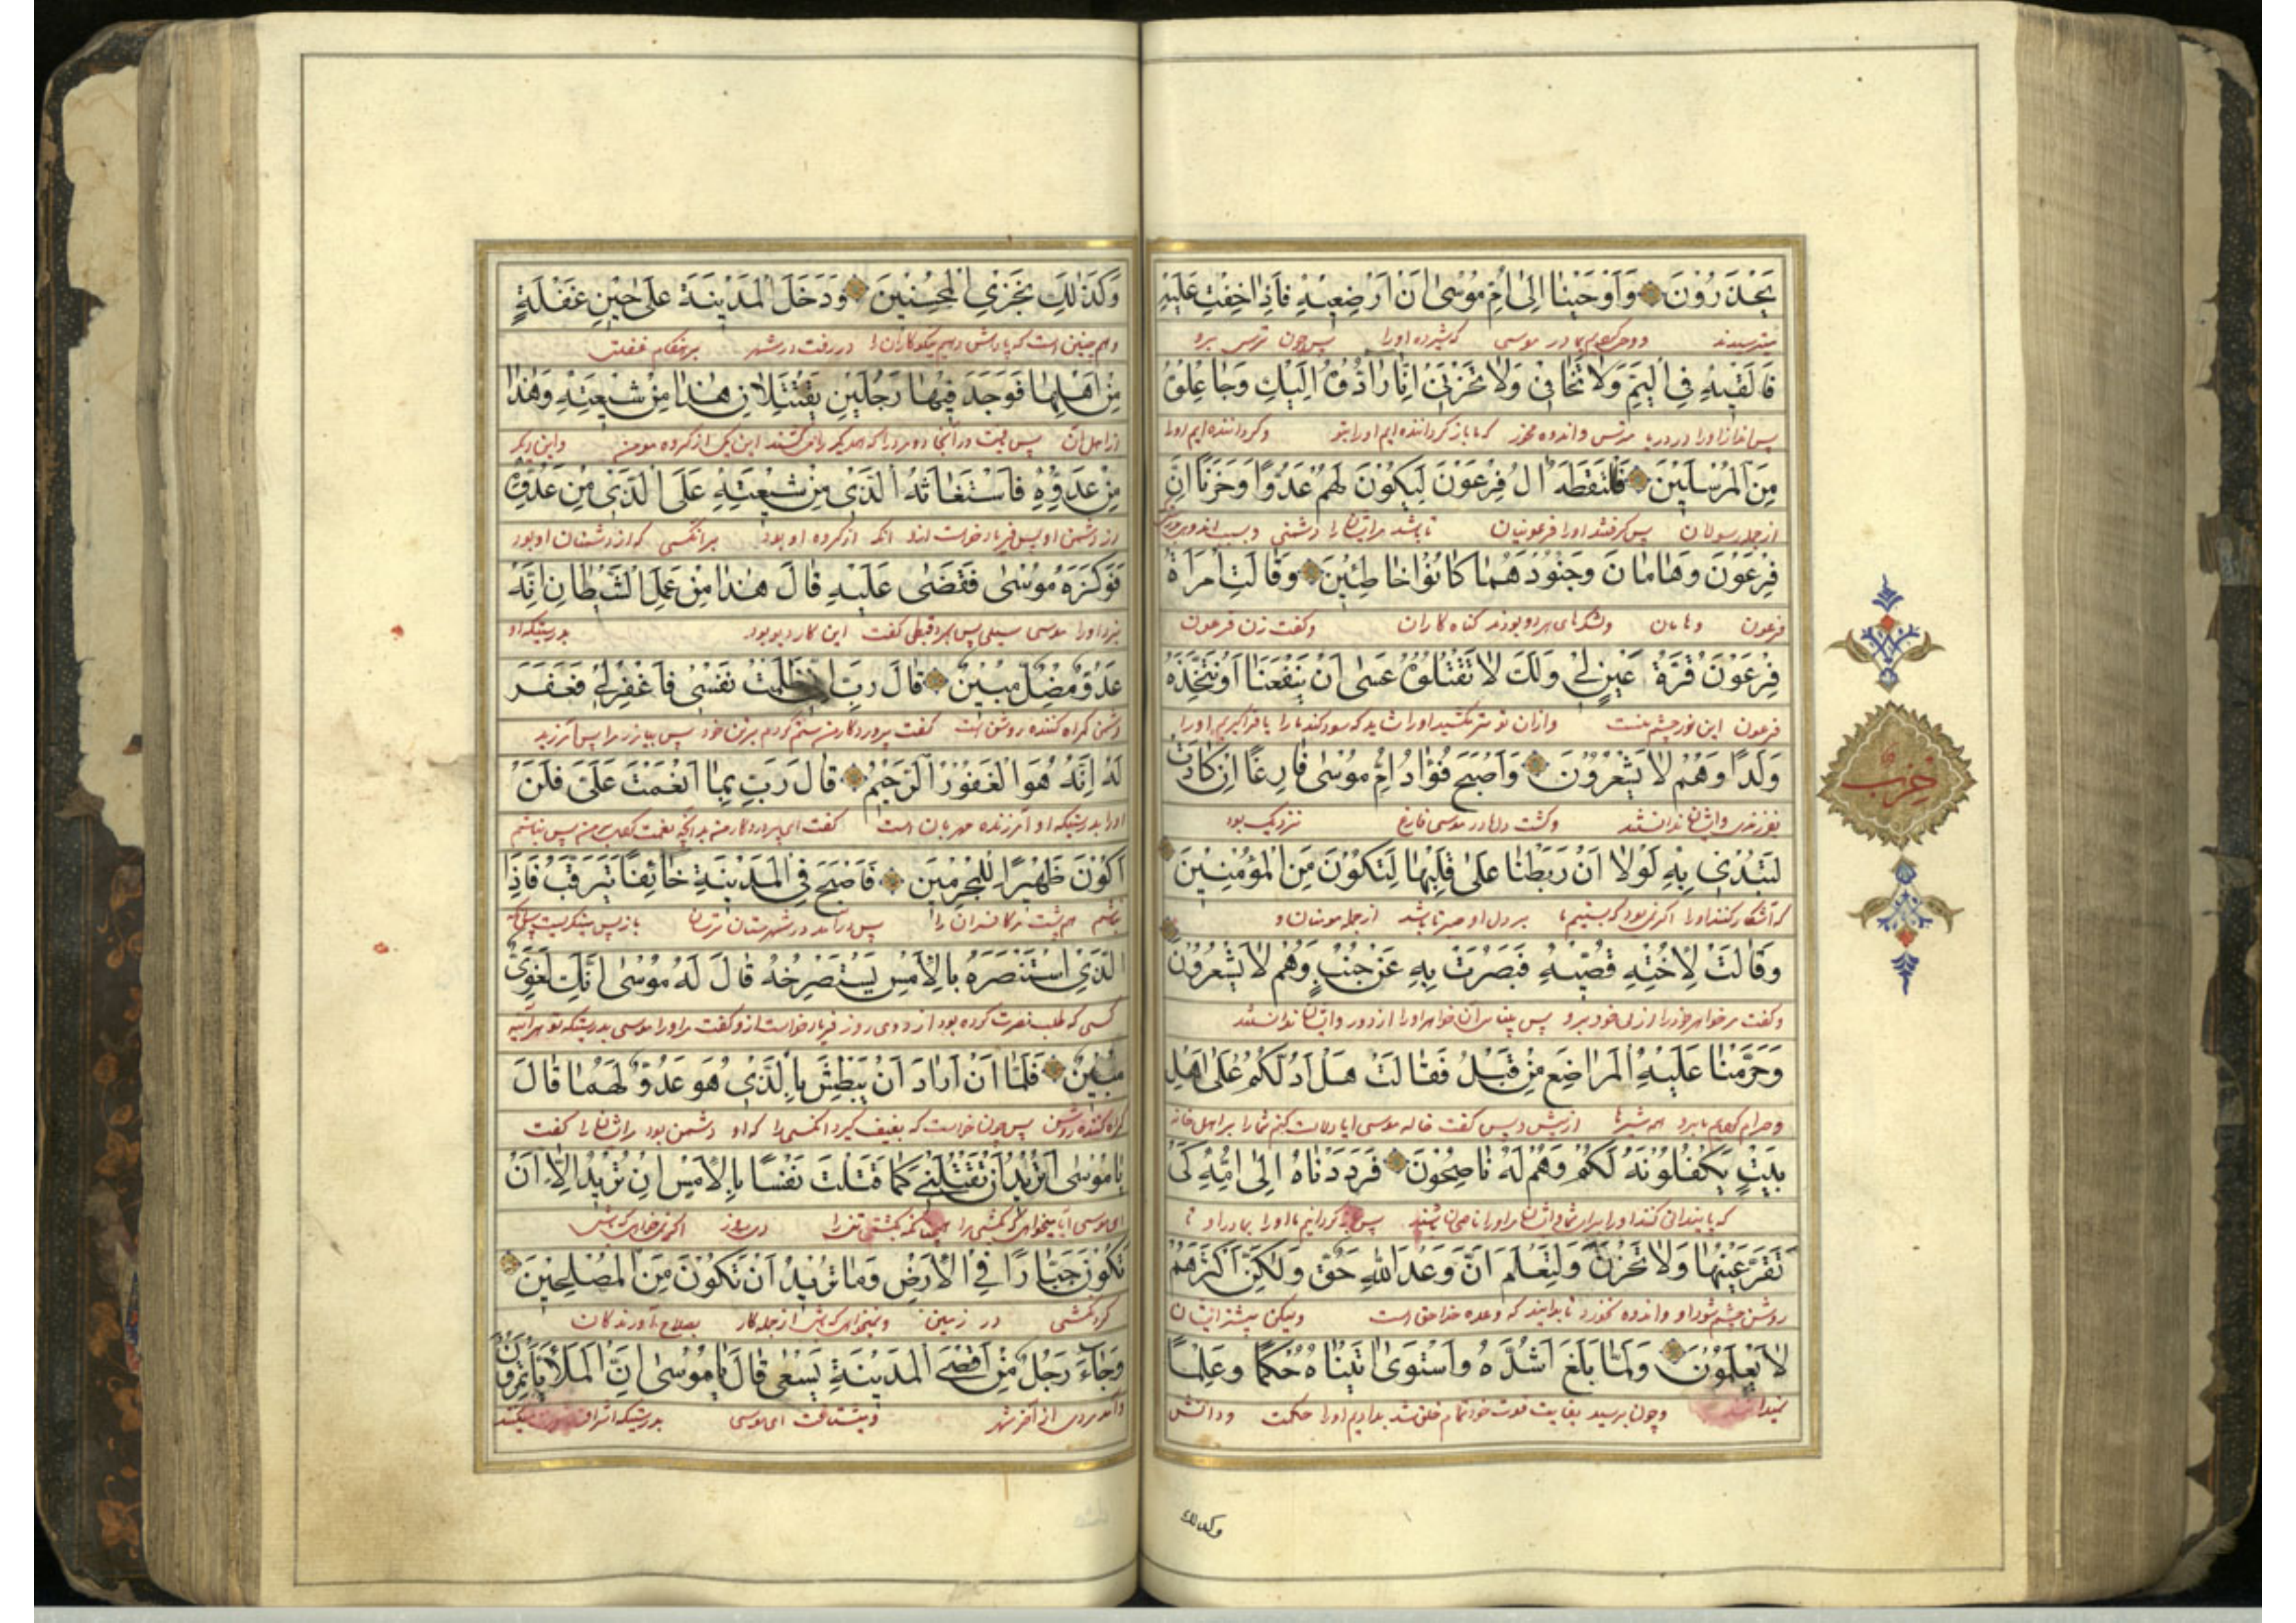 يَحْذَرُونَ وَأَوْحَيْنَا إِلَىٰ أُمِّ مُوسَىٰ أَنْ أَرْضِعِيهِ فَإِذَا خِفْتِ عَلَيْهِ
میترسیدند ووحی کردیم بمادر موسی که شیر ده اورا پس چون ترسی برو
فَأَلْقِيهِ فِي الْيَمِّ وَلَا تَخَافِي وَلَا تَحْزَنِي إِنَّا رَادُّوهُ إِلَيْكِ وَجَاعِلُوهُ
پس انداز اورا در دریا مترس واندوه مخور که ما باز گرداننده ایم اورا بتو وگرداننده ایم اورا
مِنَ الْمُرْسَلِينَ فَالْتَقَطَهُ آلُ فِرْعَوْنَ لِيَكُونَ لَهُمْ عَدُوًّا وَحَزَنًا إِنَّ
از جمله رسولان پس گرفتند اورا فرعونیان تا باشد مرایشان را دشمنی وسبب اندوه
فِرْعَوْنَ وَهَامَانَ وَجُنُودَهُمَا كَانُوا خَاطِئِينَ وَقَالَتِ امْرَأَةُ
فرعون وهامان ولشکرهای هردو بودند گناه کاران وگفت زن فرعون
فِرْعَوْنَ قُرَّةُ عَيْنٍ لِي وَلَكَ لَا تَقْتُلُوهُ عَسَىٰ أَنْ يَنْفَعَنَا أَوْ نَتَّخِذَهُ
فرعون این نور چشم منست وازان تو مکشید اورا شاید که سود کند مارا یا فراگیریم اورا
وَلَدًا وَهُمْ لَا يَشْعُرُونَ وَأَصْبَحَ فُؤَادُ أُمِّ مُوسَىٰ فَارِغًا إِنْ كَادَتْ
بفرزندی وایشان ندانستند وگشت دل مادر موسی فارغ نزدیک بود
لَتُبْدِي بِهِ لَوْلَا أَنْ رَبَطْنَا عَلَىٰ قَلْبِهَا لِتَكُونَ مِنَ الْمُؤْمِنِينَ
که آشکار کند اورا اگر نمی بود که بستیم ما بر دل او صبر تا باشد از جمله مومنان و
وَقَالَتْ لِأُخْتِهِ قُصِّيهِ فَبَصُرَتْ بِهِ عَنْ جُنُبٍ وَهُمْ لَا يَشْعُرُونَ
وگفت مر خواهر خودرا از پی خود برو پس آن خواهر اورا از دور وایشان ندانستند
وَحَرَّمْنَا عَلَيْهِ الْمَرَاضِعَ مِنْ قَبْلُ فَقَالَتْ هَلْ أَدُلُّكُمْ عَلَىٰ أَهْلِ
وحرام کردیم ما برو همه شیرها از پیش و پس گفت خاله موسی ایا دلالت کنم شمارا بر اهل خانه
بَيْتٍ يَكْفُلُونَهُ لَكُمْ وَهُمْ لَهُ نَاصِحُونَ فَرَدَدْنَاهُ إِلَىٰ أُمِّهِ كَيْ
که پایندانی کنند اورا برای شما وایشان مر اورا ناصحان باشند پس باز گردانیم ما اورا بمادر او تا
تَقَرَّ عَيْنُهَا وَلَا تَحْزَنَ وَلِتَعْلَمَ أَنَّ وَعْدَ اللَّهِ حَقٌّ وَلَٰكِنَّ أَكْثَرَهُمْ
روشن چشم شود او واندوه نخورد تا بدانید که وعده خدا حق است ولیکن بیشتر ایشان
لَا يَعْلَمُونَ وَلَمَّا بَلَغَ أَشُدَّهُ وَاسْتَوَىٰ آتَيْنَاهُ حُكْمًا وَعِلْمًا
نمیدانند وچون برسید بغایت قوت خود تمام خلق شد بدادیم اورا حکمت ودانش
وكذلك
حزب
وَكَذَٰلِكَ نَجْزِي الْمُحْسِنِينَ وَدَخَلَ الْمَدِينَةَ عَلَىٰ حِينِ غَفْلَةٍ
وهم چنین است که پاداش دهیم نیکوکاران را در رفت در شهر بر هنگام غفلت
مِنْ أَهْلِهَا فَوَجَدَ فِيهَا رَجُلَيْنِ يَقْتَتِلَانِ هَٰذَا مِنْ شِيعَتِهِ وَهَٰذَا
از اهل آن پس یافت در آنجا دو مرد را که این یک از گروه مومن واین دیگر
مِنْ عَدُوِّهِ فَاسْتَغَاثَهُ الَّذِي مِنْ شِيعَتِهِ عَلَى الَّذِي مِنْ عَدُوِّهِ
از دشمن او پس فریاد خواست ازو انکه از گروه او بود بر انکسی که از دشمنان او بود
فَوَكَزَهُ مُوسَىٰ فَقَضَىٰ عَلَيْهِ قَالَ هَٰذَا مِنْ عَمَلِ الشَّيْطَانِ إِنَّهُ
بزد اورا موسی سیلی پس بمرد قبطی گفت این کار دیو بود بدرستیکه او
عَدُوٌّ مُضِلٌّ مُبِينٌ قَالَ رَبِّ إِنِّي ظَلَمْتُ نَفْسِي فَاغْفِرْ لِي فَغَفَرَ
دشمن گمراه کننده روشن است گفت پروردگار من ستم کردم بر تن خود پس بیامرز مرا پس آمرزید
لَهُ إِنَّهُ هُوَ الْغَفُورُ الرَّحِيمُ قَالَ رَبِّ بِمَا أَنْعَمْتَ عَلَيَّ فَلَنْ
اورا بدرستیکه او آمرزنده مهربان است گفت ای پروردگار من بدآنچه نعمت کردی بر من پس نباشم
أَكُونَ ظَهِيرًا لِلْمُجْرِمِينَ فَأَصْبَحَ فِي الْمَدِينَةِ خَائِفًا يَتَرَقَّبُ فَإِذَا
هم پشت مر کافران را پس در آمد در شهرستان ترسان باز پس مینگریست
الَّذِي اسْتَنْصَرَهُ بِالْأَمْسِ يَسْتَصْرِخُهُ قَالَ لَهُ مُوسَىٰ إِنَّكَ لَغَوِيٌّ
کسی که طلب نصرت کرده بود ازو دی روز فریاد خواست ازو گفت مر اورا موسی بدرستیکه تو هر آینه
مُبِينٌ فَلَمَّا أَنْ أَرَادَ أَنْ يَبْطِشَ بِالَّذِي هُوَ عَدُوٌّ لَهُمَا قَالَ
گمراه کننده روشن پس چون خواست که بگیرد انکسی را که او دشمن بود مر ایشان را گفت
يَا مُوسَىٰ أَتُرِيدُ أَنْ تَقْتُلَنِي كَمَا قَتَلْتَ نَفْسًا بِالْأَمْسِ إِنْ تُرِيدُ إِلَّا أَنْ
ای موسی آیا میخواهی که بکشی مرا همچنانکه بکشتی تنی را دی روز
تَكُونَ جَبَّارًا فِي الْأَرْضِ وَمَا تُرِيدُ أَنْ تَكُونَ مِنَ الْمُصْلِحِينَ
گردنکشی در زمین ونمیخواهی که باشی از جمله کار بصلاح آورندگان
وَجَاءَ رَجُلٌ مِنْ أَقْصَى الْمَدِينَةِ يَسْعَىٰ قَالَ يَا مُوسَىٰ إِنَّ الْمَلَأَ يَأْتَمِرُونَ
وآمد مردی از آخر شهر گفت ای موسی بدرستیکه اشراف میکنند